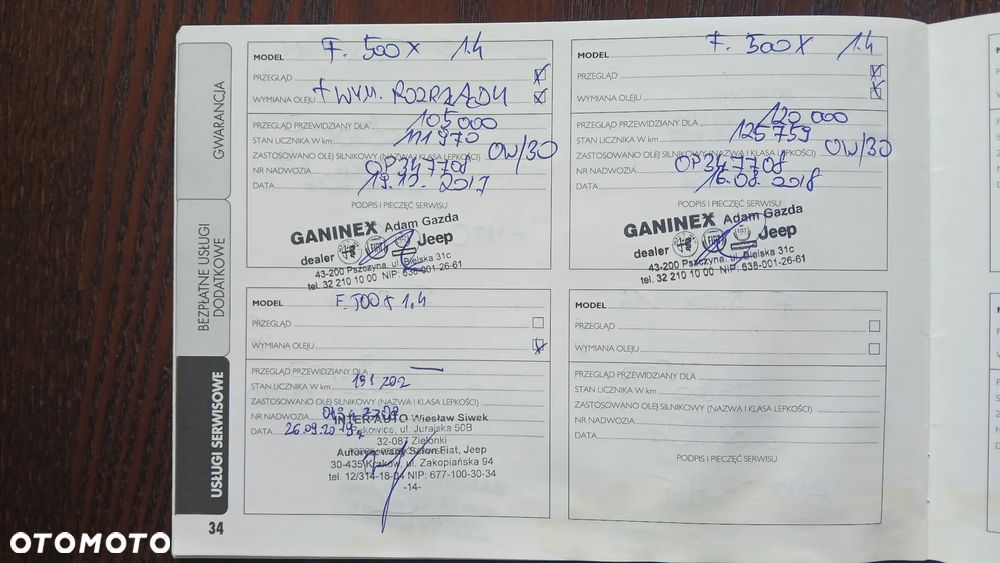 GWARANCJA
BEZPŁATNE USŁUGI
DODATKOWE
USŁUGI SERWISOWE
34
MODEL F. 500X 1.4
PRZEGLĄD
WYMIANA OLEJU + WYM. ROZRZĄDU
PRZEGLĄD PRZEWIDZIANY DLA 105000
STAN LICZNIKA W km 111970
ZASTOSOWANO OLEJ SILNIKOWY (NAZWA I KLASA LEPKOŚCI) 0W/30
NR NADWOZIA OP347708
DATA 19.12.2017
PODPIS I PIECZĘĆ SERWISU
GANINEX Adam Gazda
dealer FIAT Jeep
43-200 Pszczyna, ul. Bielska 31c
tel. 32 210 10 00 NIP: 638-001-26-61
MODEL F. 500X 1.4
PRZEGLĄD
WYMIANA OLEJU
PRZEGLĄD PRZEWIDZIANY DLA 120000
STAN LICZNIKA W km 125759
ZASTOSOWANO OLEJ SILNIKOWY (NAZWA I KLASA LEPKOŚCI) 0W/30
NR NADWOZIA OP347708
DATA 16.08.2018
PODPIS I PIECZĘĆ SERWISU
GANINEX Adam Gazda
dealer FIAT Jeep
43-200 Pszczyna, ul. Bielska 31c
tel. 32 210 10 00 NIP: 638-001-26-61
MODEL F. 500X 1.4
PRZEGLĄD
WYMIANA OLEJU
PRZEGLĄD PRZEWIDZIANY DLA —
STAN LICZNIKA W km 191202
ZASTOSOWANO OLEJ SILNIKOWY (NAZWA I KLASA LEPKOŚCI)
NR NADWOZIA
DATA 26.09.2019
INTER AUTO Wiesław Siwek
ul. Jurajska 50B
32-087 Zielonki
Autoryzowany Salon Fiat, Jeep
30-435 Kraków, ul. Zakopiańska 94
tel. 12/314-18-04 NIP: 677-100-30-34
-14-
MODEL
PRZEGLĄD
WYMIANA OLEJU
PRZEGLĄD PRZEWIDZIANY DLA
STAN LICZNIKA W km
ZASTOSOWANO OLEJ SILNIKOWY (NAZWA I KLASA LEPKOŚCI)
NR NADWOZIA
DATA
PODPIS I PIECZĘĆ SERWISU
OTOMOTO